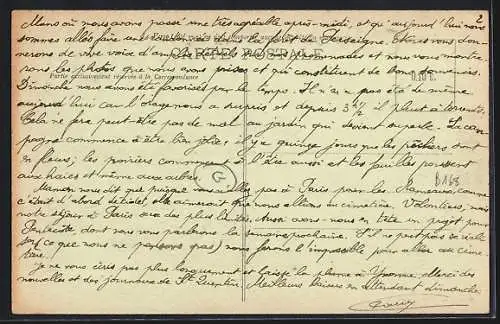 2
Mans où nous avons passé une très agréable après-midi, et qu'aujourd'hui nous
sommes allés faire en
nerons de vive voix et nous vous montre-
rons les photos que nous avons prises et qui constitueront de bons souvenirs.
CARTE POSTALE
Partie exclusivement réservée à la Correspondance
Dimanche nous avons été favorisés par le temps. Il n'en a pas été de même
aujourd'hui car l'orage nous a surpris et depuis 3h 1/2 il pleut à torrents.
Cela ne fera peut-être pas de mal au jardin qui devient superbe. La cam-
pagne commence à être bien jolie; il y a quinze jours que les pêchers sont
en fleurs; les poiriers commencent à l'être aussi et les feuilles poussent
aux haies et même aux arbres.
G
D168
Maman nous dit que puisque nous n'allons pas à Paris pour les Rameaux comme
c'était d'abord décidé, elle aimerait que nous allions au cimetière. Volontiers, mais
notre séjour à Paris sera des plus Aussi avons-nous en tête un projet pour
Pentecôte dont nous vous parlerons la semaine prochaine. S'il ne peut pas se réali-
ser (ce que nous ne pensons pas) nous ferons l'impossible pour aller au cime-
tière.
Je ne vous écris pas plus longuement et laisse la plume à Yvonne. Merci des
nouvelles et des journaux de St Quentin. Meilleurs baisers en attendant dimanche.